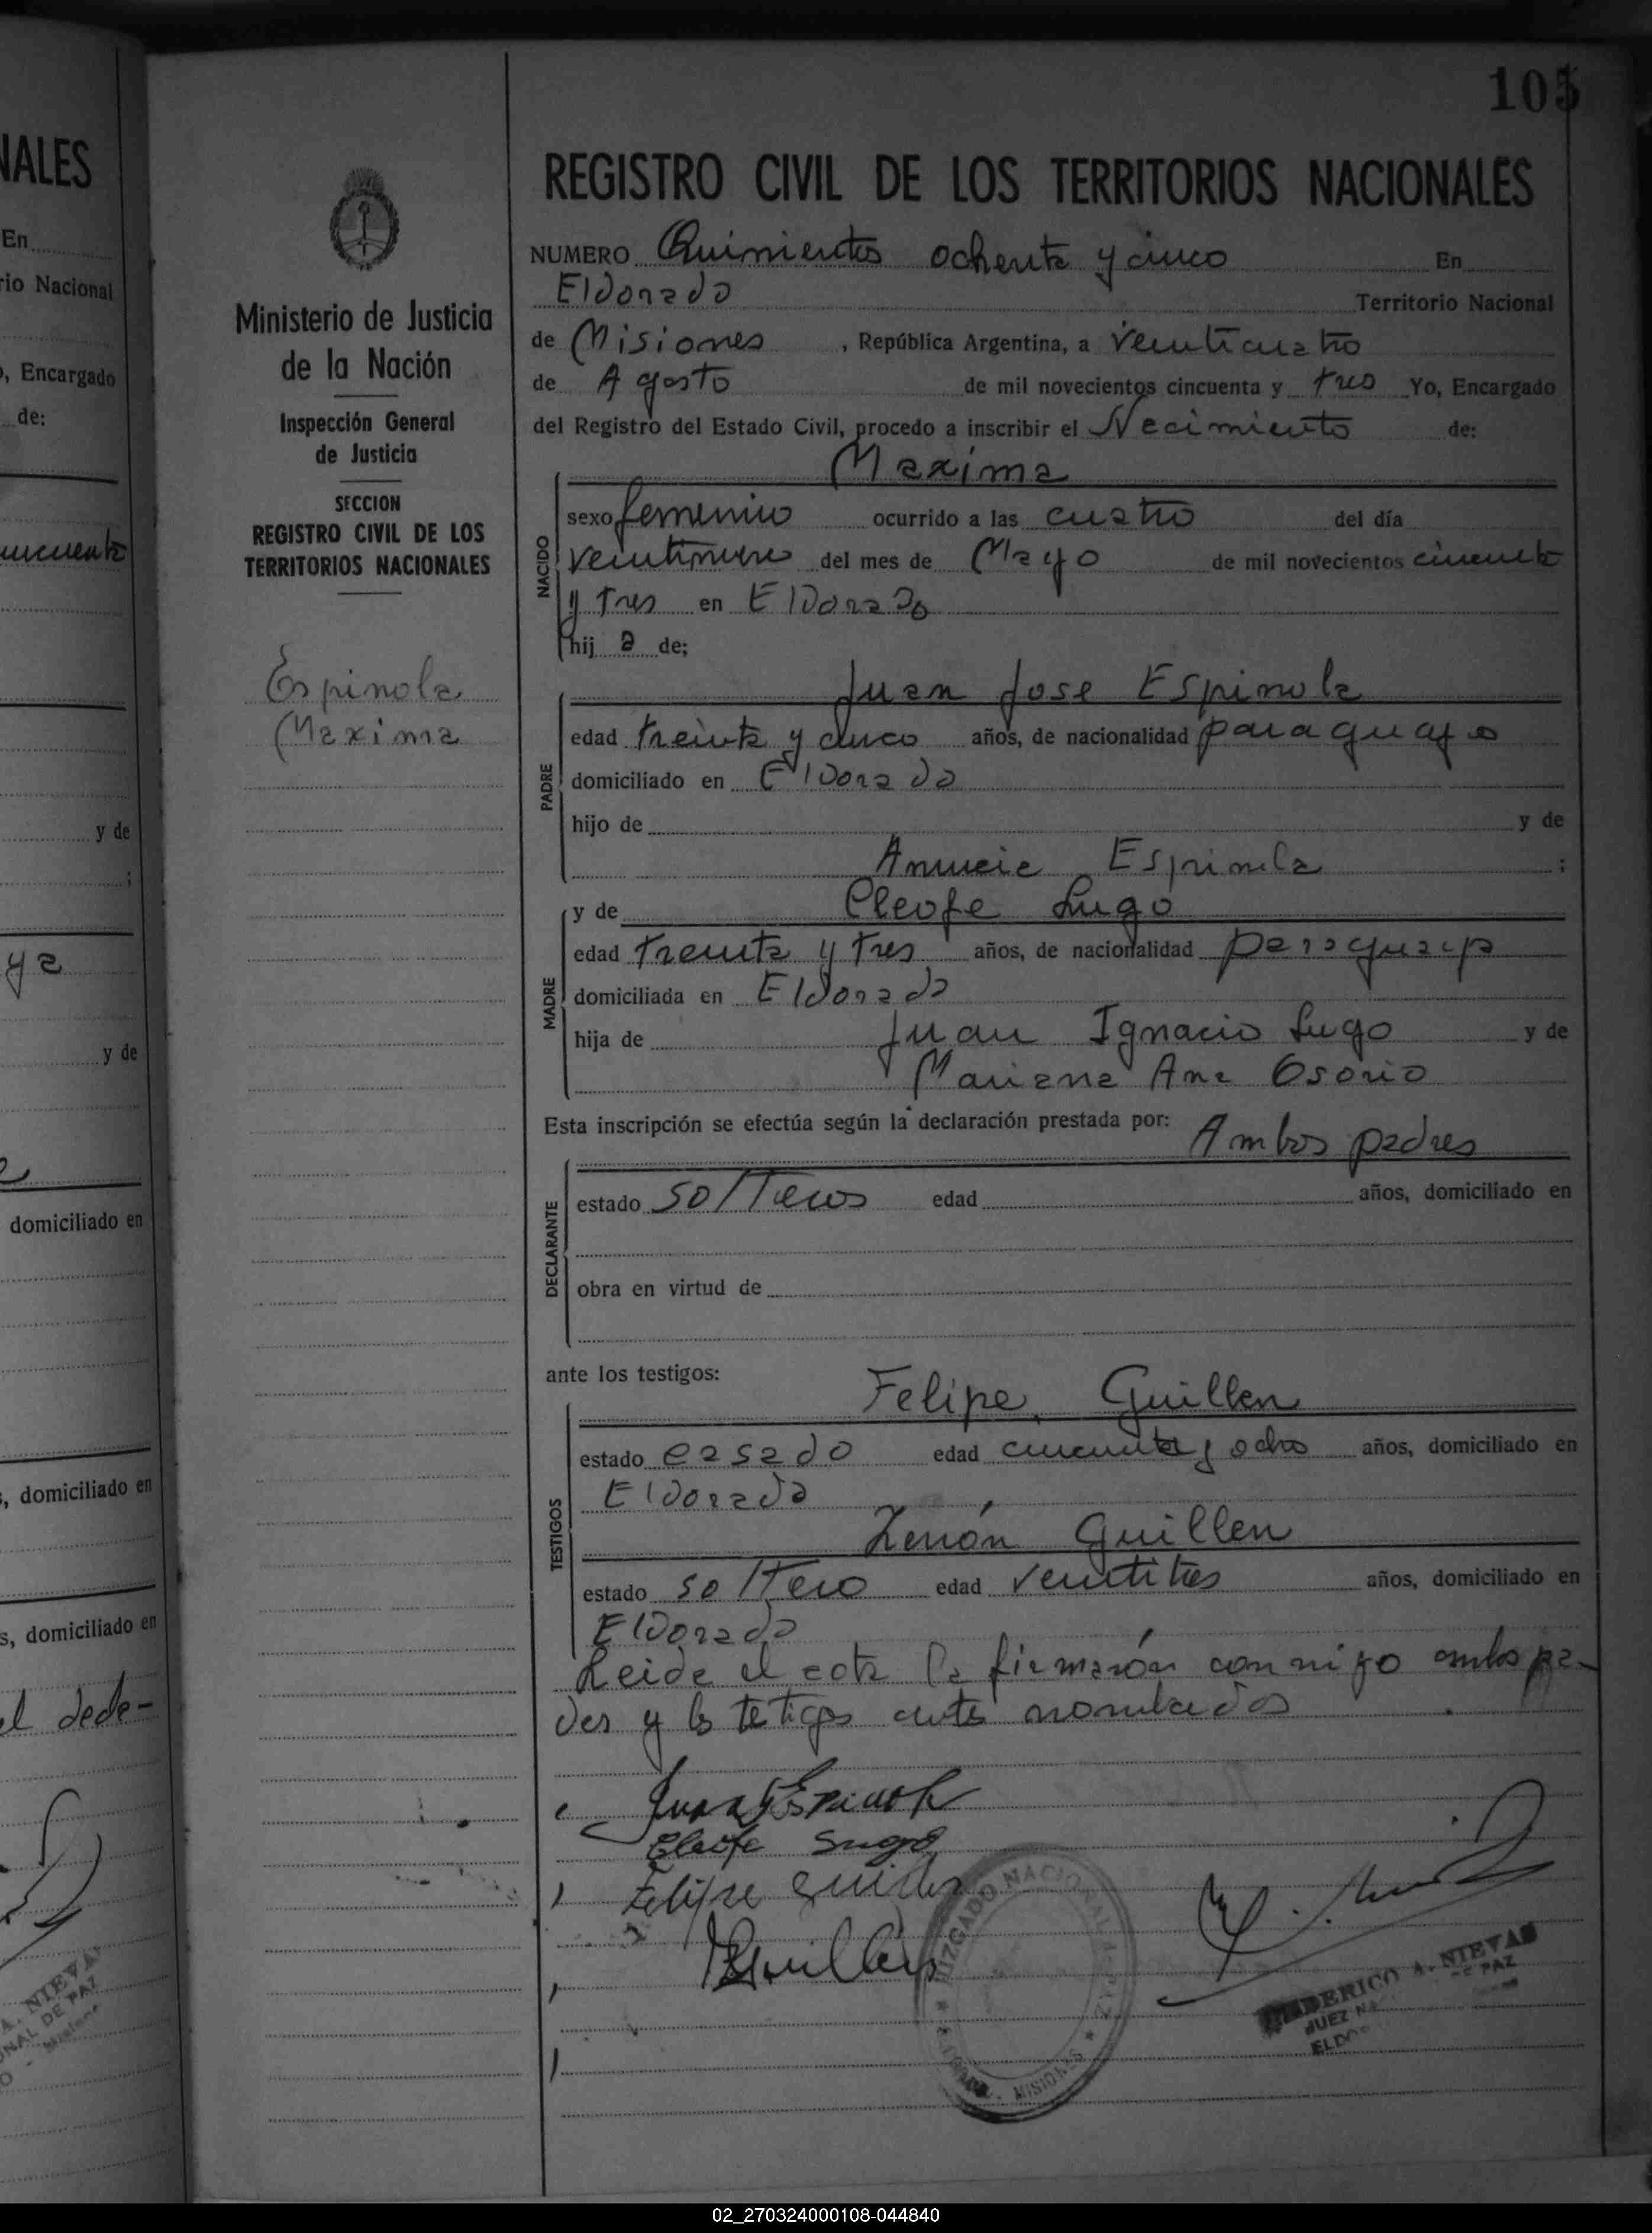 105
NALES
En
rio Nacional
, Encargado
de:
y de
y de
domiciliado en
, domiciliado en
s, domiciliado en
Ministerio de Justicia
de la Nación
Inspección General
de Justicia
SECCION
REGISTRO CIVIL DE LOS
TERRITORIOS NACIONALES
Espinola
Maxima
REGISTRO CIVIL DE LOS TERRITORIOS NACIONALES
NUMERO Quinientos ochenta y cinco En
Eldorado Territorio Nacional
de Misiones, República Argentina, a veinticuatro
de Agosto de mil novecientos cincuenta y tres Yo, Encargado
del Registro del Estado Civil, procedo a inscribir el Nacimiento de:
Maxima
NACIDO
sexo femenino ocurrido a las cuatro del día
veintinueve del mes de Mayo de mil novecientos cincuenta
y tres en Eldorado
hij a de;
Juan Jose Espinola
PADRE
edad treinta y cinco años, de nacionalidad paraguayo
domiciliado en Eldorado
hijo de y de
Espinola ;
y de Cleofe Lugo
MADRE
edad treinta y tres años, de nacionalidad paraguaya
domiciliada en Eldorado
hija de Juan Ignacio Lugo y de
Mariana Ana Osorio
Esta inscripción se efectúa según la declaración prestada por: Ambos padres
DECLARANTE
estado solteros edad años, domiciliado en
obra en virtud de
ante los testigos:
Felipe Guillen
TESTIGOS
estado casado edad cincuenta y ocho años, domiciliado en
Eldorado
Zenón Guillen
estado soltero edad veintitres años, domiciliado en
Eldorado
Leida el acta la firmarón conmigo ambos pa-
dres y los testigos antes nombrados
Juan J Espinola
Cleofe Lugo
Felipe Guillen
Guillen
JUZGADO NACIONAL DE PAZ
MISIONES
FEDERICO A. NIEVAS
JUEZ NA DE PAZ
ELDO
02_270324000108-044840